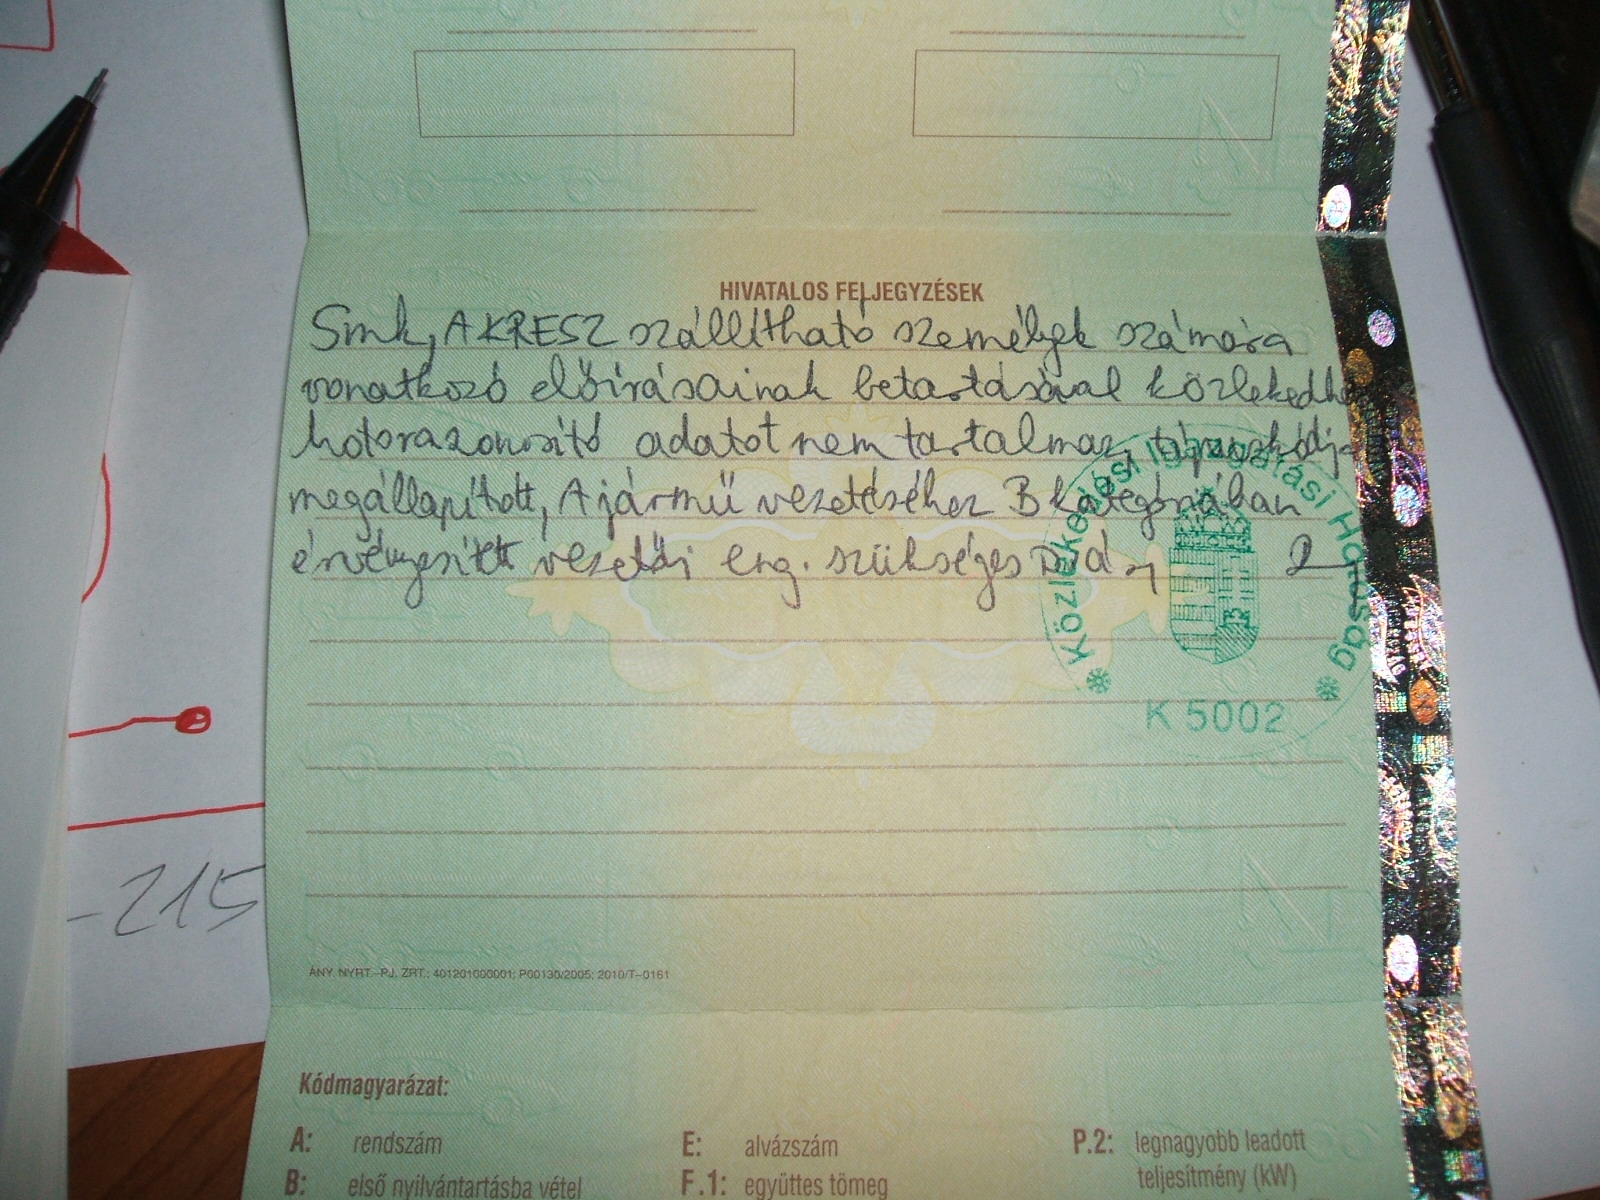 HIVATALOS FELJEGYZÉSEK
Smk, A KRESZ szállítható személyek számára
vonatkozó előírásainak betartásával közlekedhe
Motorazonosító adatot nem tartalmaz, típuskódja
megállapított, A jármű vezetéséhez B kategóriában
érvényesített vezetői eng. szükséges
Közlekedési Igazgatási Hatóság
K 5002
-215
ÁNY. NYRT.-PJ. ZRT.: 401201000001; P00130/2005; 2010/T-0161
Kódmagyarázat:
A: rendszám E: alvázszám P.2: legnagyobb leadott
teljesítmény (kW)
B: első nyilvántartásba vétel F.1: együttes tömeg